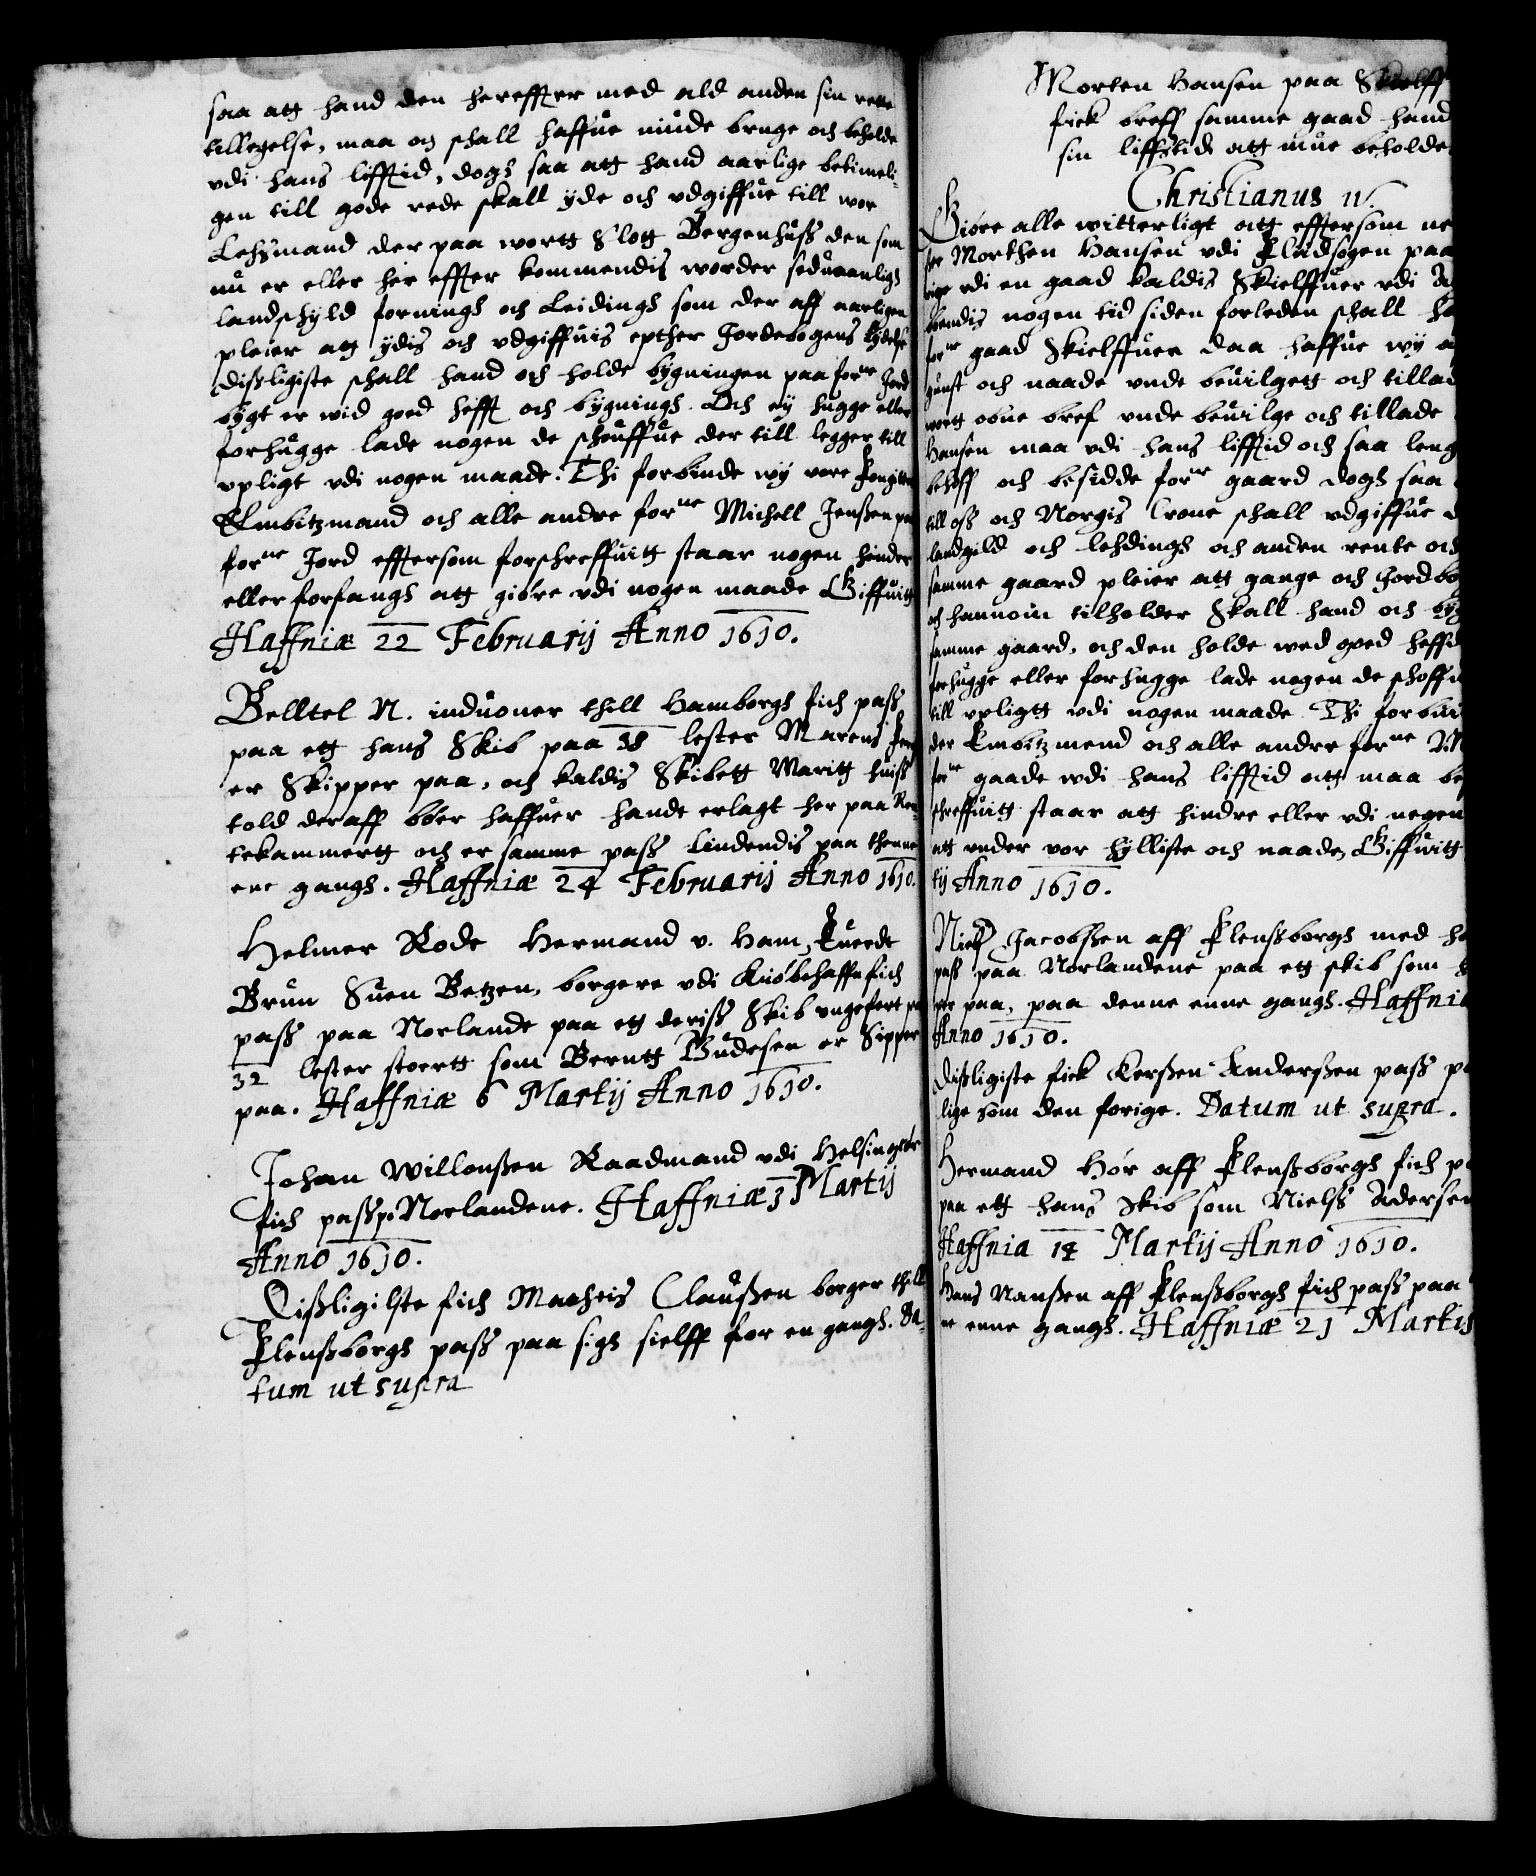 saa att hand den hereffter med ald anden sin rette
tillegelse, maa och schall haffue niude bruge och beholde
vdi hans lifftid, dogh saa att hand aarlige betimeli-
gen till gode rede skall yde och vdgiffue till wor
Lehsmand der paa wortt Slott Bergenhuss den som
nu er eller her effter kommendis worder seduaanligh
landschyld fornings och Leidings som der aff aarligen
pleier att ydis och vdgiffuis epther Jordebogens lydelse
disligiste schall hand och holde bygningen paa forne Jord
bygt er wid goed hefft och bygnings. Och ey hugge eller
forhugge lade nogen de schouffue der till legger till
vpligt vdi nogen maade. Thi forbinde wy vore
Embitzmand och alle andre forne Michell Jenssen paa
forne Jord efftersom forschreffuitt staar nogen hinder
eller forfangh att giøre vdi nogen maade Giffuitt
Haffniæ 22 Februarij Anno 1610.
Belltel N. induoner thill Hamborgh fich pass
paa ett hans Skib paa 38 lester Marens
er Skipper paa, och kaldis Skibett Maritt huiss
told deraff bøer haffuer hande erlagt her paa Ren-
tekammertt och er samme pass Lindendis paa thenne
ene gangh. Haffniæ 24 Februarij Anno 1610.
Helmer Rode Hermand v. Ham, Euerdt
Brun Suen Betzen, borgere vdi Kiøbehaffn fich
pass paa Norlande paa ett deriss Skib vngefert paa
32 lester stoertt som Berntt Budesen er Sipper
paa. Haffniæ 6 Martij Anno 1610.
Johan Willomssen Raadmand vdi Helsingøer
fich pass pa Norlandene. Haffniæ 3 Martij
Anno 1610.
Dissligilste fich Matheis Claussen borger thill
Flenssborgh pass paa sigh sielff for en gangh. Da-
tum ut supra
Morten Hansen paa Skielff
fick breff samme gaad hand
sin liffstid att mue beholde
Christianus
Giøre alle witterligt att efftersom ne
er Morthen Hansen vdi Fladsogen paa
vdi en gaad kaldis Skielffuer vdi
bendis nogen tid siden forleden schall ha
forne gaad Skielffuer daa haffue wy a
gunst och naade vnde beuilgett och tillad
wortt obne bref vnde beuilge och tillade
Hansen maa vdi hans lifftid och saa leng
behoff och besidde forne gaard dogh saa
till oss och Norgis Crone schall vdgiffue
landgild och lehdings och anden rente och
samme gaard pleier att gange och Jordbog
och hannom tilholder Skall hand och byg
samme gaard, och den holde wed goed heffd
forhugge eller forhugge lade nogen de schoffu
till vpligtt vdi nogen maade Thi forbiu
der Embitzmend och alle andre forne M
forne gaade vdi hans lifftid att maa be
schreffuitt staar att hindre eller vdi negen
att vnder vor hylliste och naade, Giffuitt
tij Anno 1610.
Niels Jacobssen aff Flenssborgh med ha
pass paa Norlandene paa ett skib som
er paa, paa denne enne gangh. Haffniæ
Anno 1610.
Dissligiste fick Kerssen Anderssen pass pa
lige som den forige. Datum ut supra.
Hermand Hør aff Flenssborgh fich pa
paa ett hans Skib som Nielss Adersen
Haffnia 14 Martij Anno 1610.
Hans Nanssen aff Flenssborgh fich pass paa
ne enne gangh. Haffniæ 21 Martij